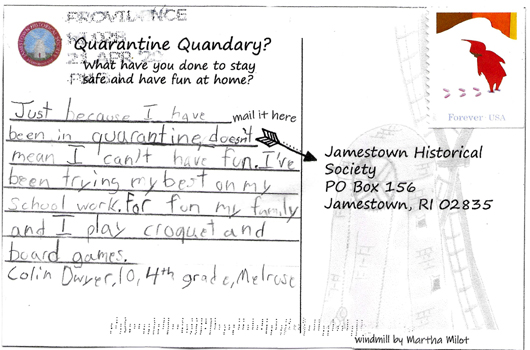 PROVIDENCE
21 APR
Quarantine Quandary?
What have you done to stay
safe and have fun at home?
Just because I have
been in quarantine, doesn't
mean I can't have fun. I've
been trying my best on my
school work. For fun my family
and I play croquet and
board games.
Colin Dwyer, 10, 4th grade, Melrose
mail it here
Forever USA
Jamestown Historical
Society
PO Box 156
Jamestown, RI 02835
windmill by Martha Milot